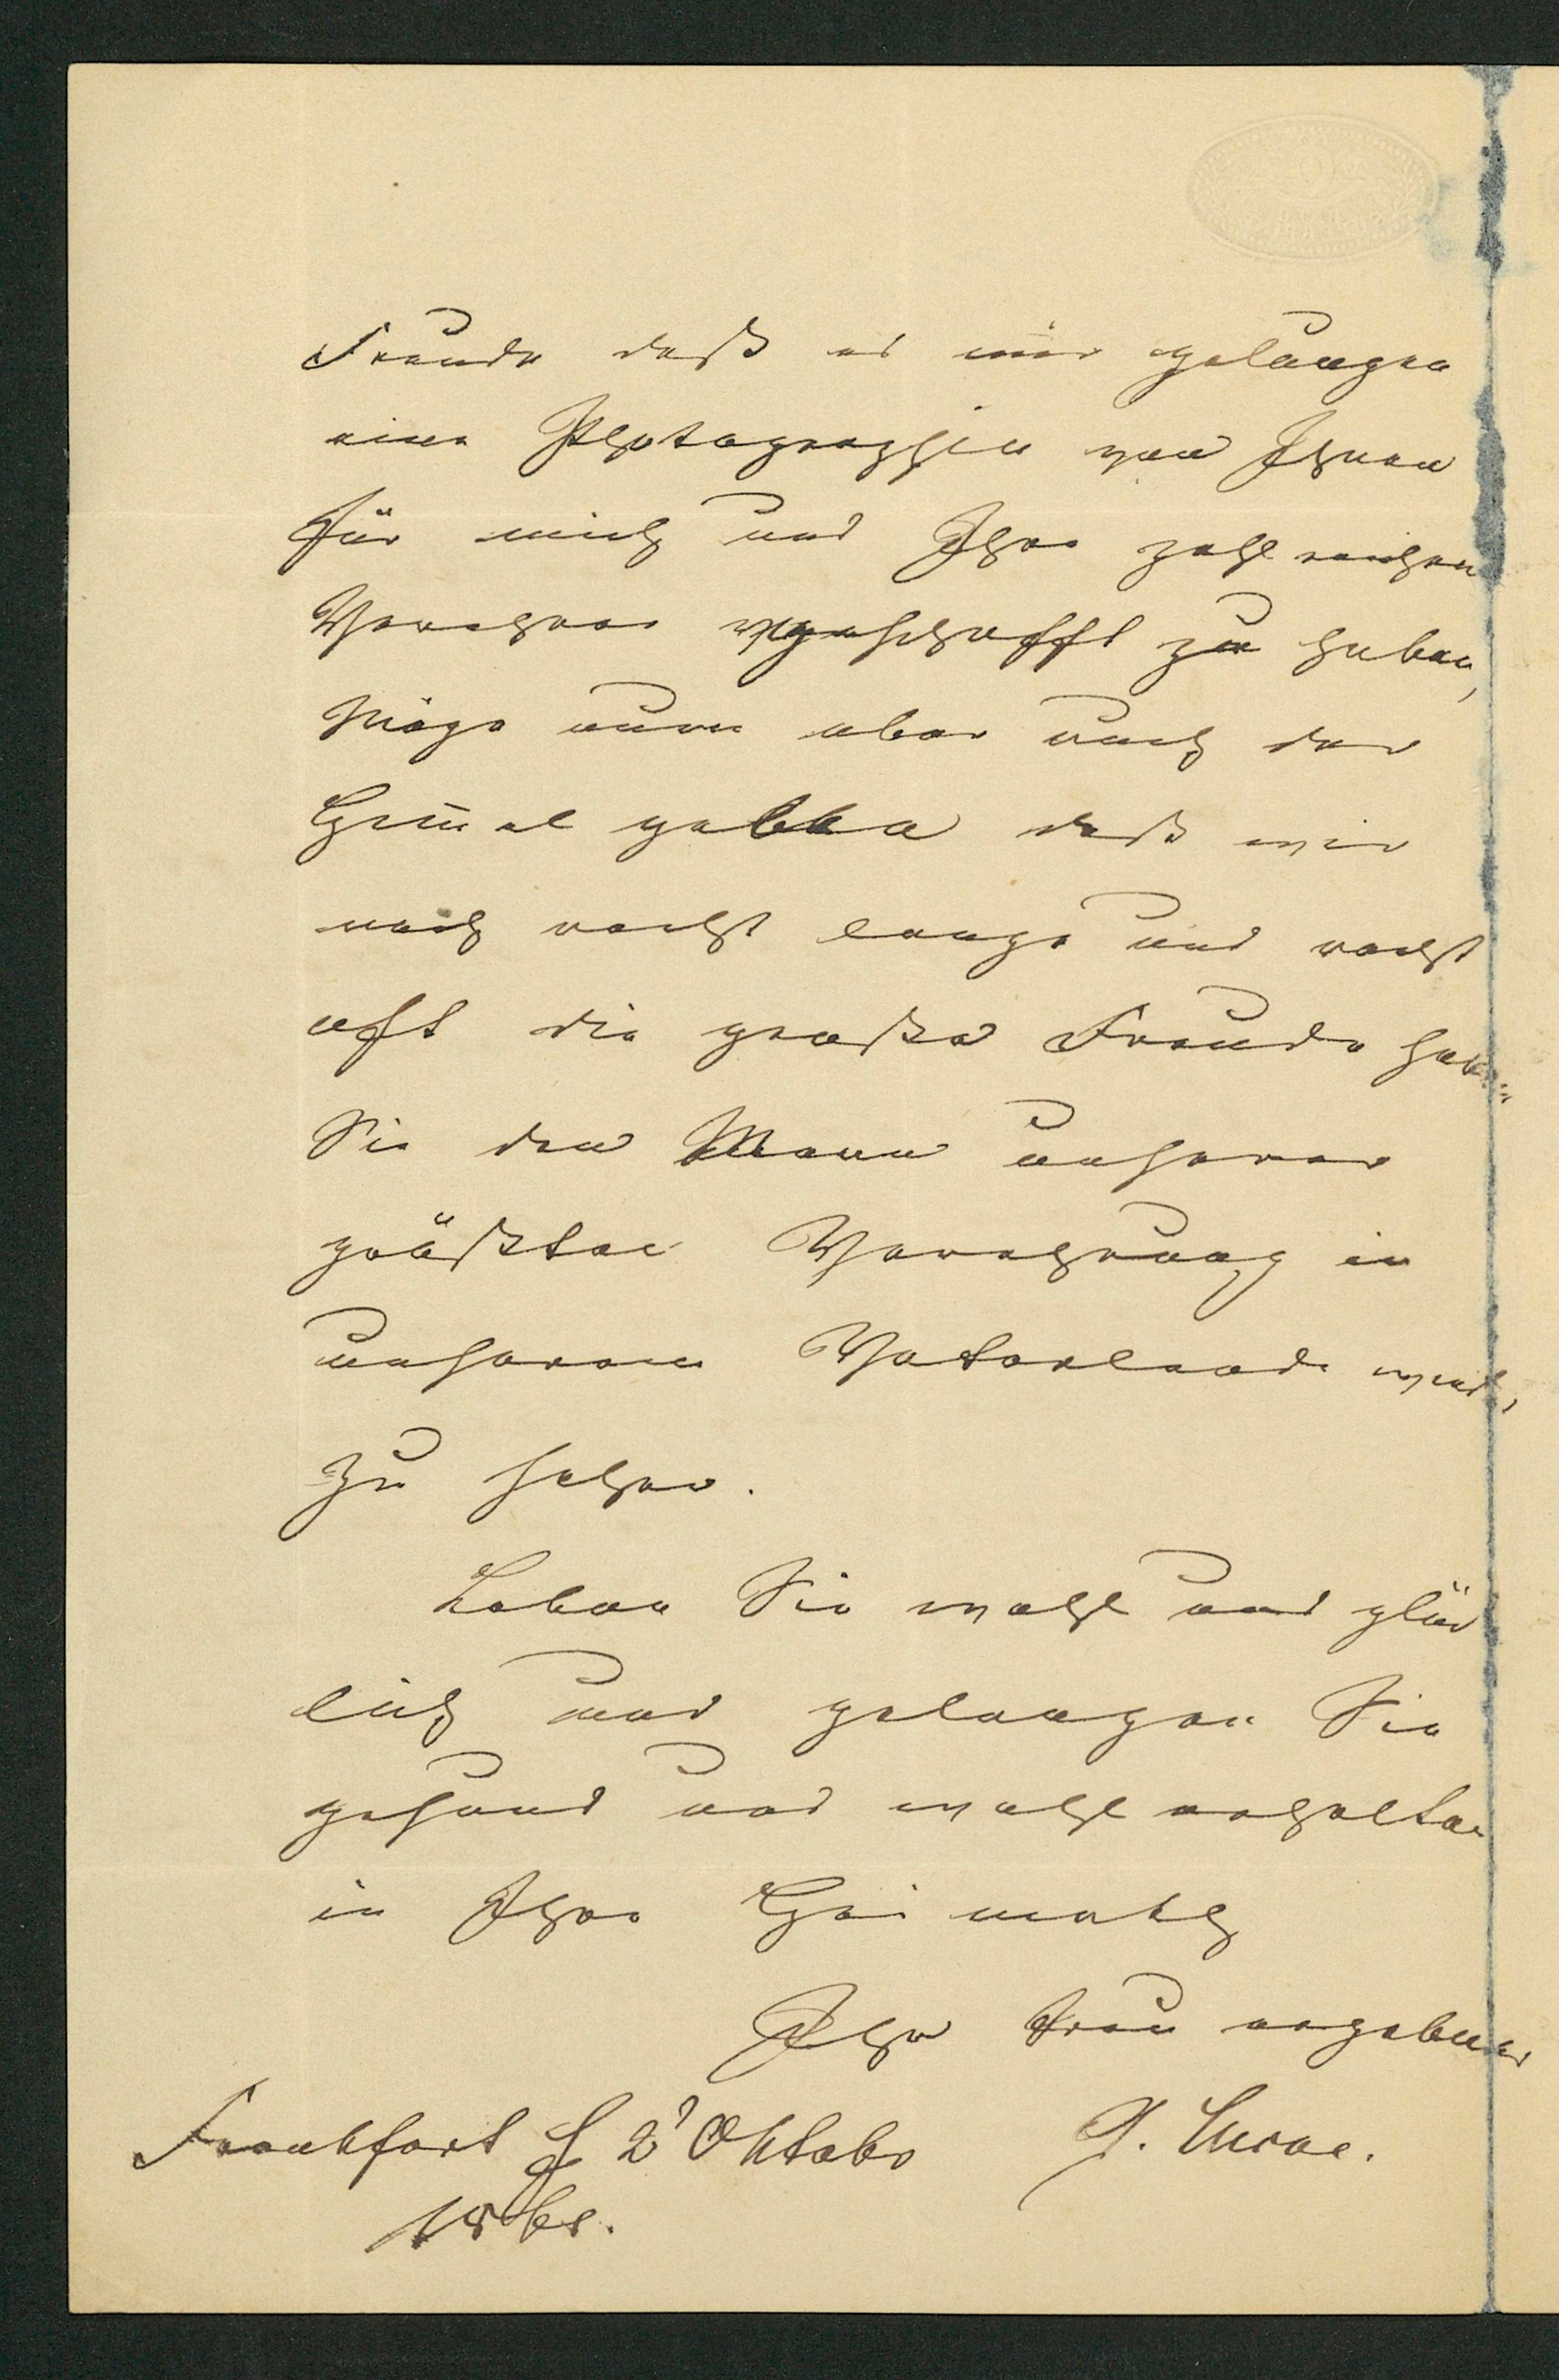 Freude daß es mir gelungen
eine Photographie von Ihnen
für mich und Ihre zahlreichen
Verehrer geschafft zu haben,
Möge nun aber auch der
Himel geben daß wir
noch recht lange und recht
oft die große Freude haben
Sie den Mann unserer
größten Verehrung in
unserem Vaterlande
zu sehen.
Leben Sie wohl und glück
lich und gelangen Sie
gesund und wohl erhalten
in Ihre Heimath
Ihr treu ergebener
Frankfurt 2 Oktobr
G. Lucae.